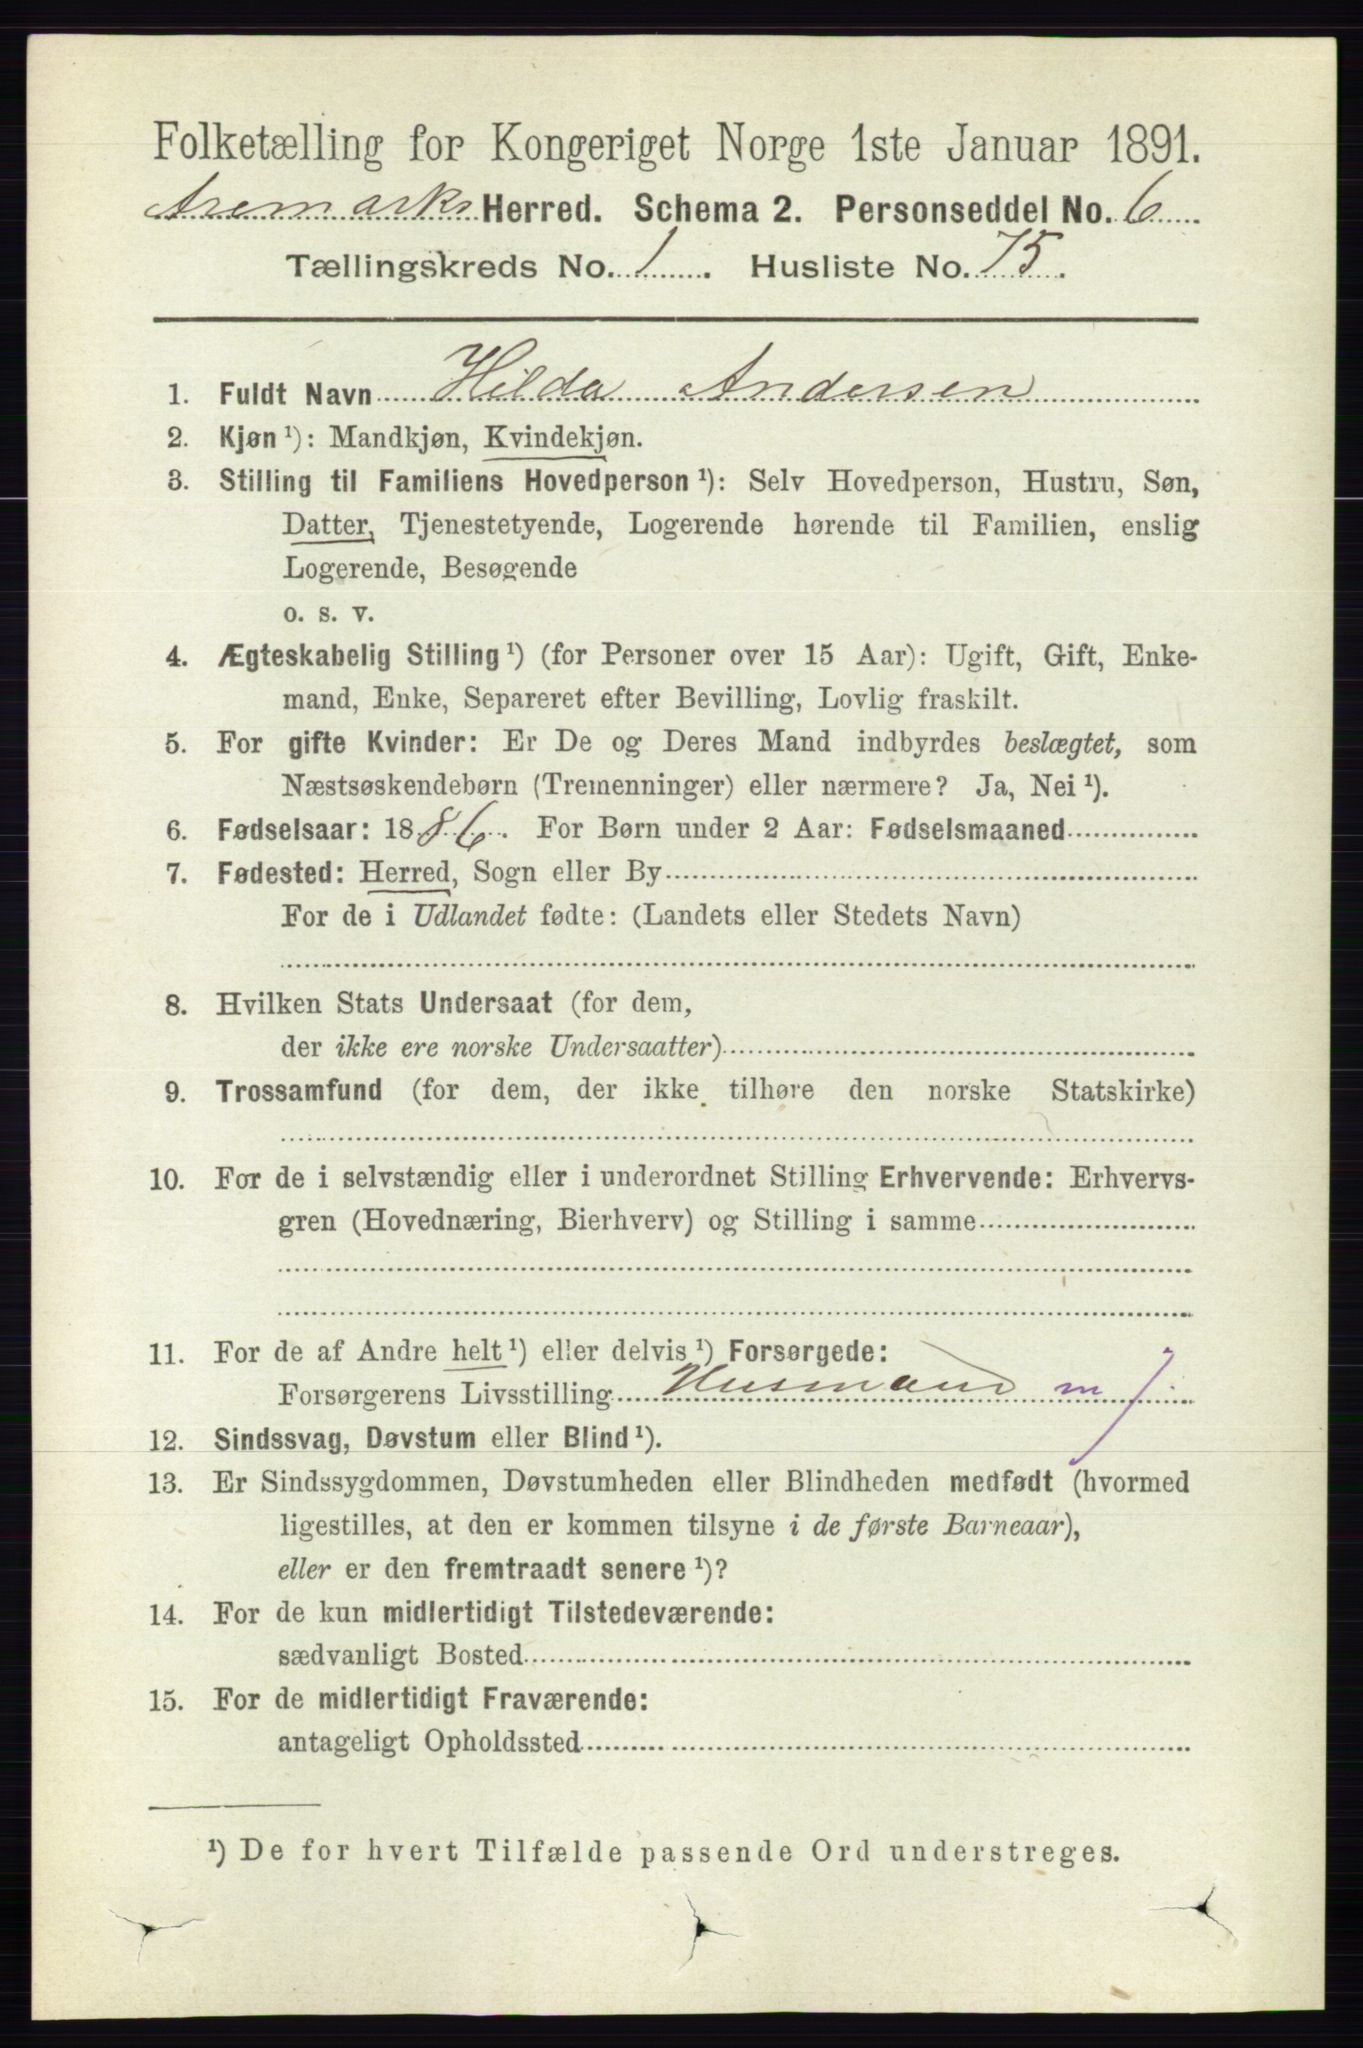 Folketælling for Kongeriget Norge 1ste Januar 1891.
Aremarks Herred. Schema 2. Personseddel No. 6
Tællingskreds No. 1. Husliste No. 75.
1. Fuldt Navn Hilda Andersen
2. Kjøn ¹): Mandkjøn, Kvindekjøn.
3. Stilling til Familiens Hovedperson ¹): Selv Hovedperson, Hustru, Søn,
Datter, Tjenestetyende, Logerende hørende til Familien, enslig
Logerende, Besøgende
o. s. v.
4. Ægteskabelig Stilling ¹) (for Personer over 15 Aar): Ugift, Gift, Enke-
mand, Enke, Separeret efter Bevilling, Lovlig fraskilt.
5. For gifte Kvinder: Er De og Deres Mand indbyrdes beslægtet, som
Næstsøskendebørn (Tremenninger) eller nærmere? Ja, Nei ¹).
6. Fødselsaar: 1886. For Børn under 2 Aar: Fødselsmaaned
7. Fødested: Herred, Sogn eller By
For de i Udlandet fødte: (Landets eller Stedets Navn)
8. Hvilken Stats Undersaat (for dem,
der ikke ere norske Undersaatter)
9. Trossamfund (for dem, der ikke tilhøre den norske Statskirke)
10. For de i selvstændig eller i underordnet Stilling Erhvervende: Erhvervs-
gren (Hovednæring, Bierhverv) og Stilling i samme
11. For de af Andre helt ¹) eller delvis ¹) Forsørgede:
Forsørgerens Livsstilling Husmand m j
12. Sindssvag, Døvstum eller Blind ¹).
13. Er Sindssygdommen, Døvstumheden eller Blindheden medfødt (hvormed
ligestilles, at den er kommen tilsyne i de første Barneaar),
eller er den fremtraadt senere ¹)?
14. For de kun midlertidigt Tilstedeværende:
sædvanligt Bosted
15. For de midlertidigt Fraværende:
antageligt Opholdssted
¹) De for hvert Tilfælde passende Ord understreges.